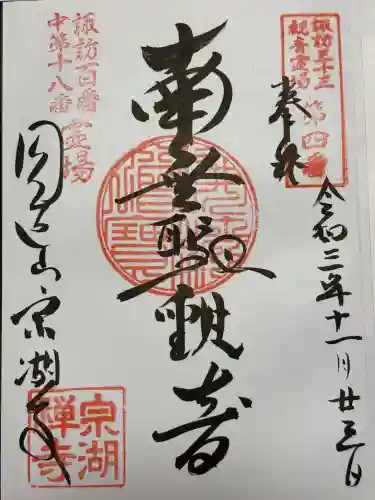 諏訪三十三
観音霊場
第四番
奉拝
令和三年十一月廿三日
南無聖観音
諏訪百番霊場
中第十八番
円通山宗湖寺
宗湖
禅寺